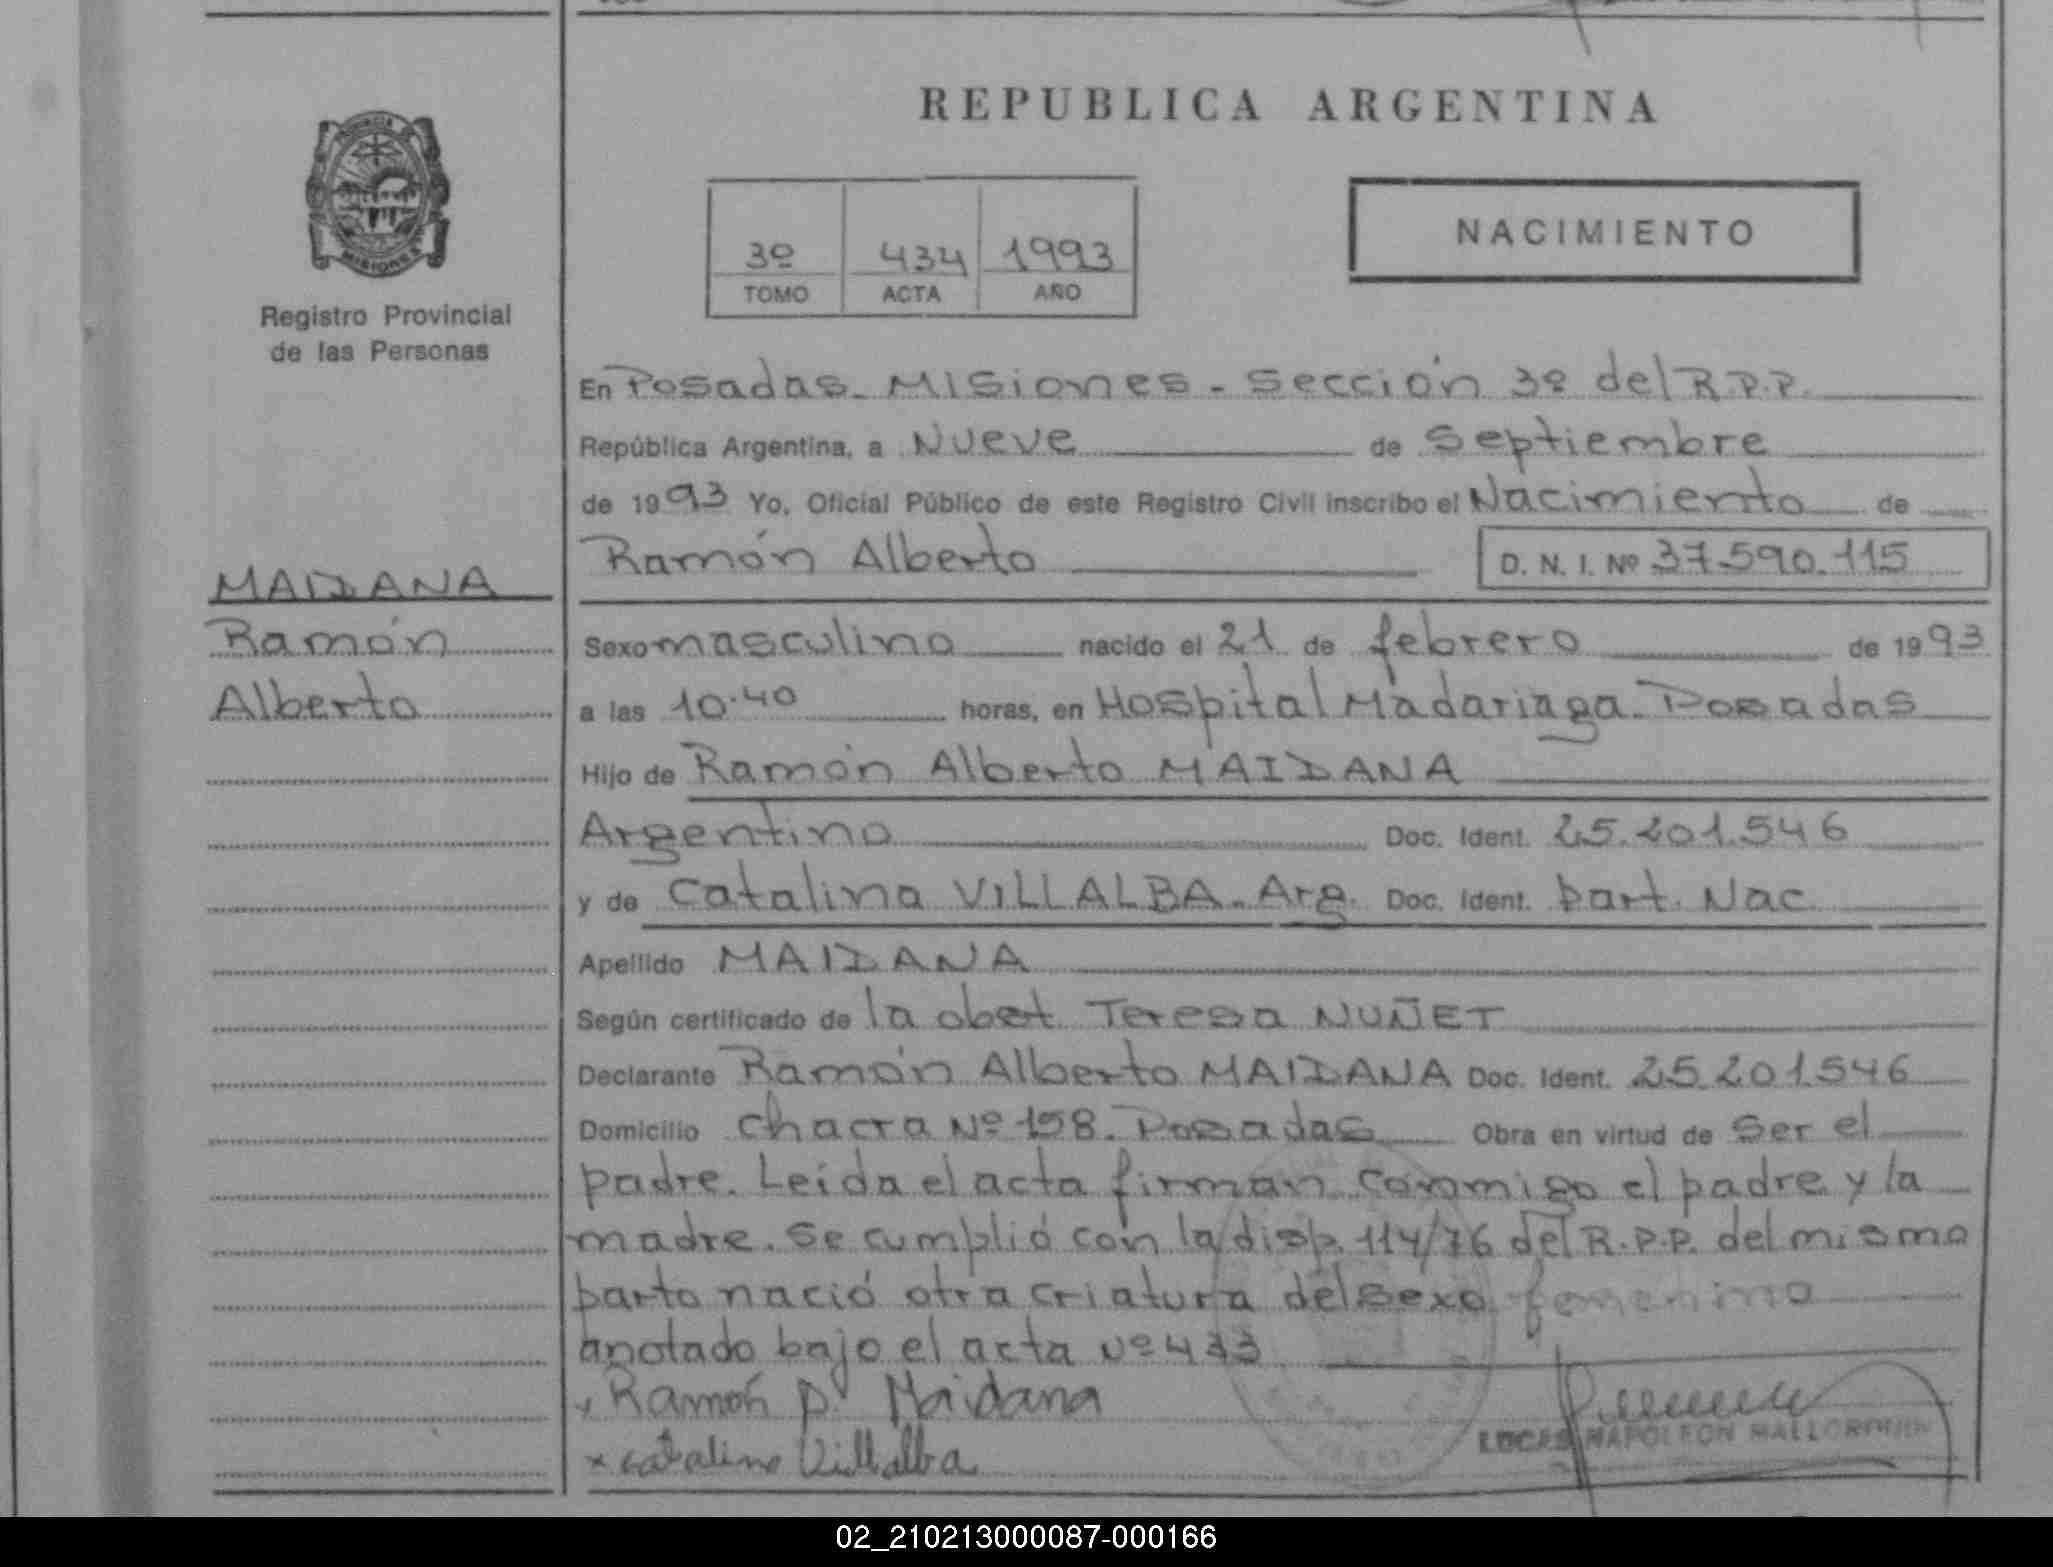 REPUBLICA ARGENTINA
PROVINCIA DE
MISIONES
Registro Provincial
de las Personas
3º 434 1993
TOMO ACTA AÑO
NACIMIENTO
En Posadas. MISiones - Sección 3º del R.P.P.
República Argentina, a Nueve de Septiembre
de 1993 Yo, Oficial Público de este Registro Civil inscribo el Nacimiento de
Ramón Alberto D. N. I. Nº 37.590.115
MAIDANA
Ramón
Alberto
Sexo masculino nacido el 21 de febrero de 1993
a las 10.40 horas, en Hospital Madariaga. Posadas
Hijo de Ramón Alberto MAIDANA
Argentino Doc. Ident. 25.201.546
y de Catalina VILLALBA. Arg. Doc. Ident. part. Nac
Apellido MAIDANA
Según certificado de la obst. Teresa NUÑEZ
Declarante Ramón Alberto MAIDANA Doc. Ident. 25.201.546
Domicilio chacra Nº 158. Posadas Obra en virtud de Ser el
padre. Leída el acta firman conmigo el padre y la
madre. Se cumplió con la disp. 114/76 del R.P.P. del mismo
parto nació otra criatura del sexo femenino
anotado bajo el acta Nº 433
x Ramón A. Maidana
x catalina Villalba
LUCAS NAPOLEON
02_210213000087-000166